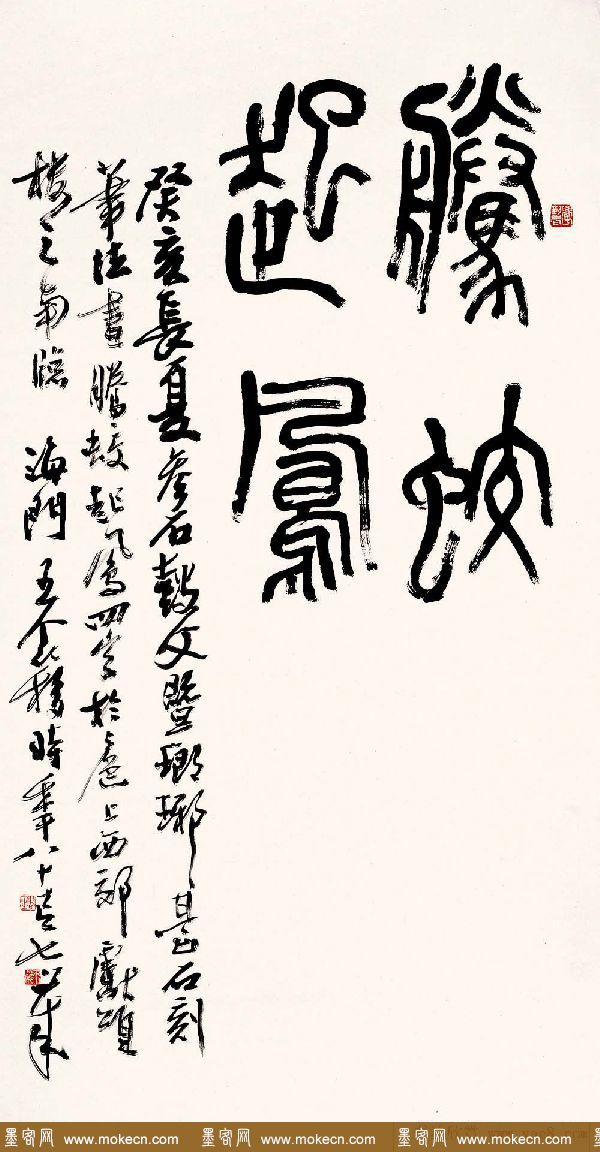 騰蛟
起鳳
癸亥長夏參石鼓文暨瑯琊臺石刻
筆法書騰蛟起鳳四字於滬上西郊獻頌
樓之南牕 海門王个簃時年八十七
墨客网 www.mokecn.com 墨客网 www.mokecn.com 墨客网 www.mokecn.com